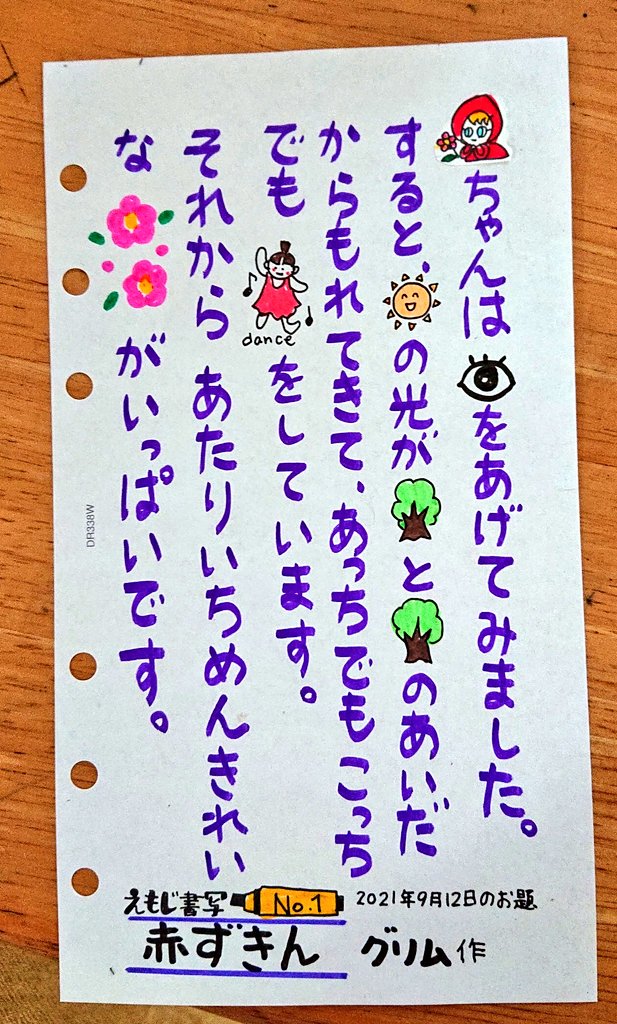 ちゃんは👁をあげてみました。
すると、🌞の光が🌳と🌳のあいだ
からもれてきて、あっちでもこっち
でも dance をしています。
それから あたりいちめんきれい
な🌺🌺がいっぱいです。
DR338W
えもじ書写 No.1 2021年9月12日のお題
赤ずきん グリム作